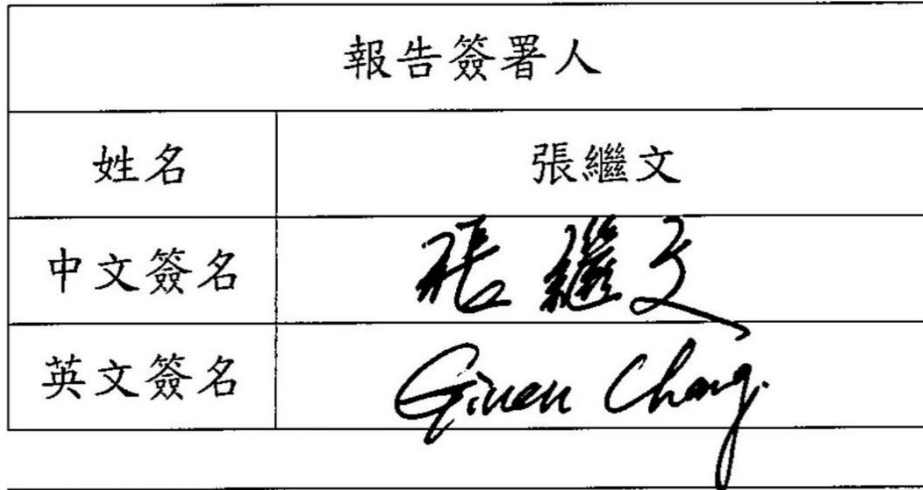 報告簽署人
姓名 張繼文
中文簽名 張繼文
英文簽名 Giuen Chang.